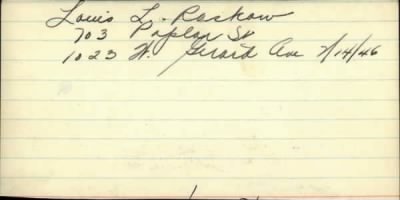 Louis L. Raskow
703 Poplar St
1023 W. Girard Ave 2/14/46